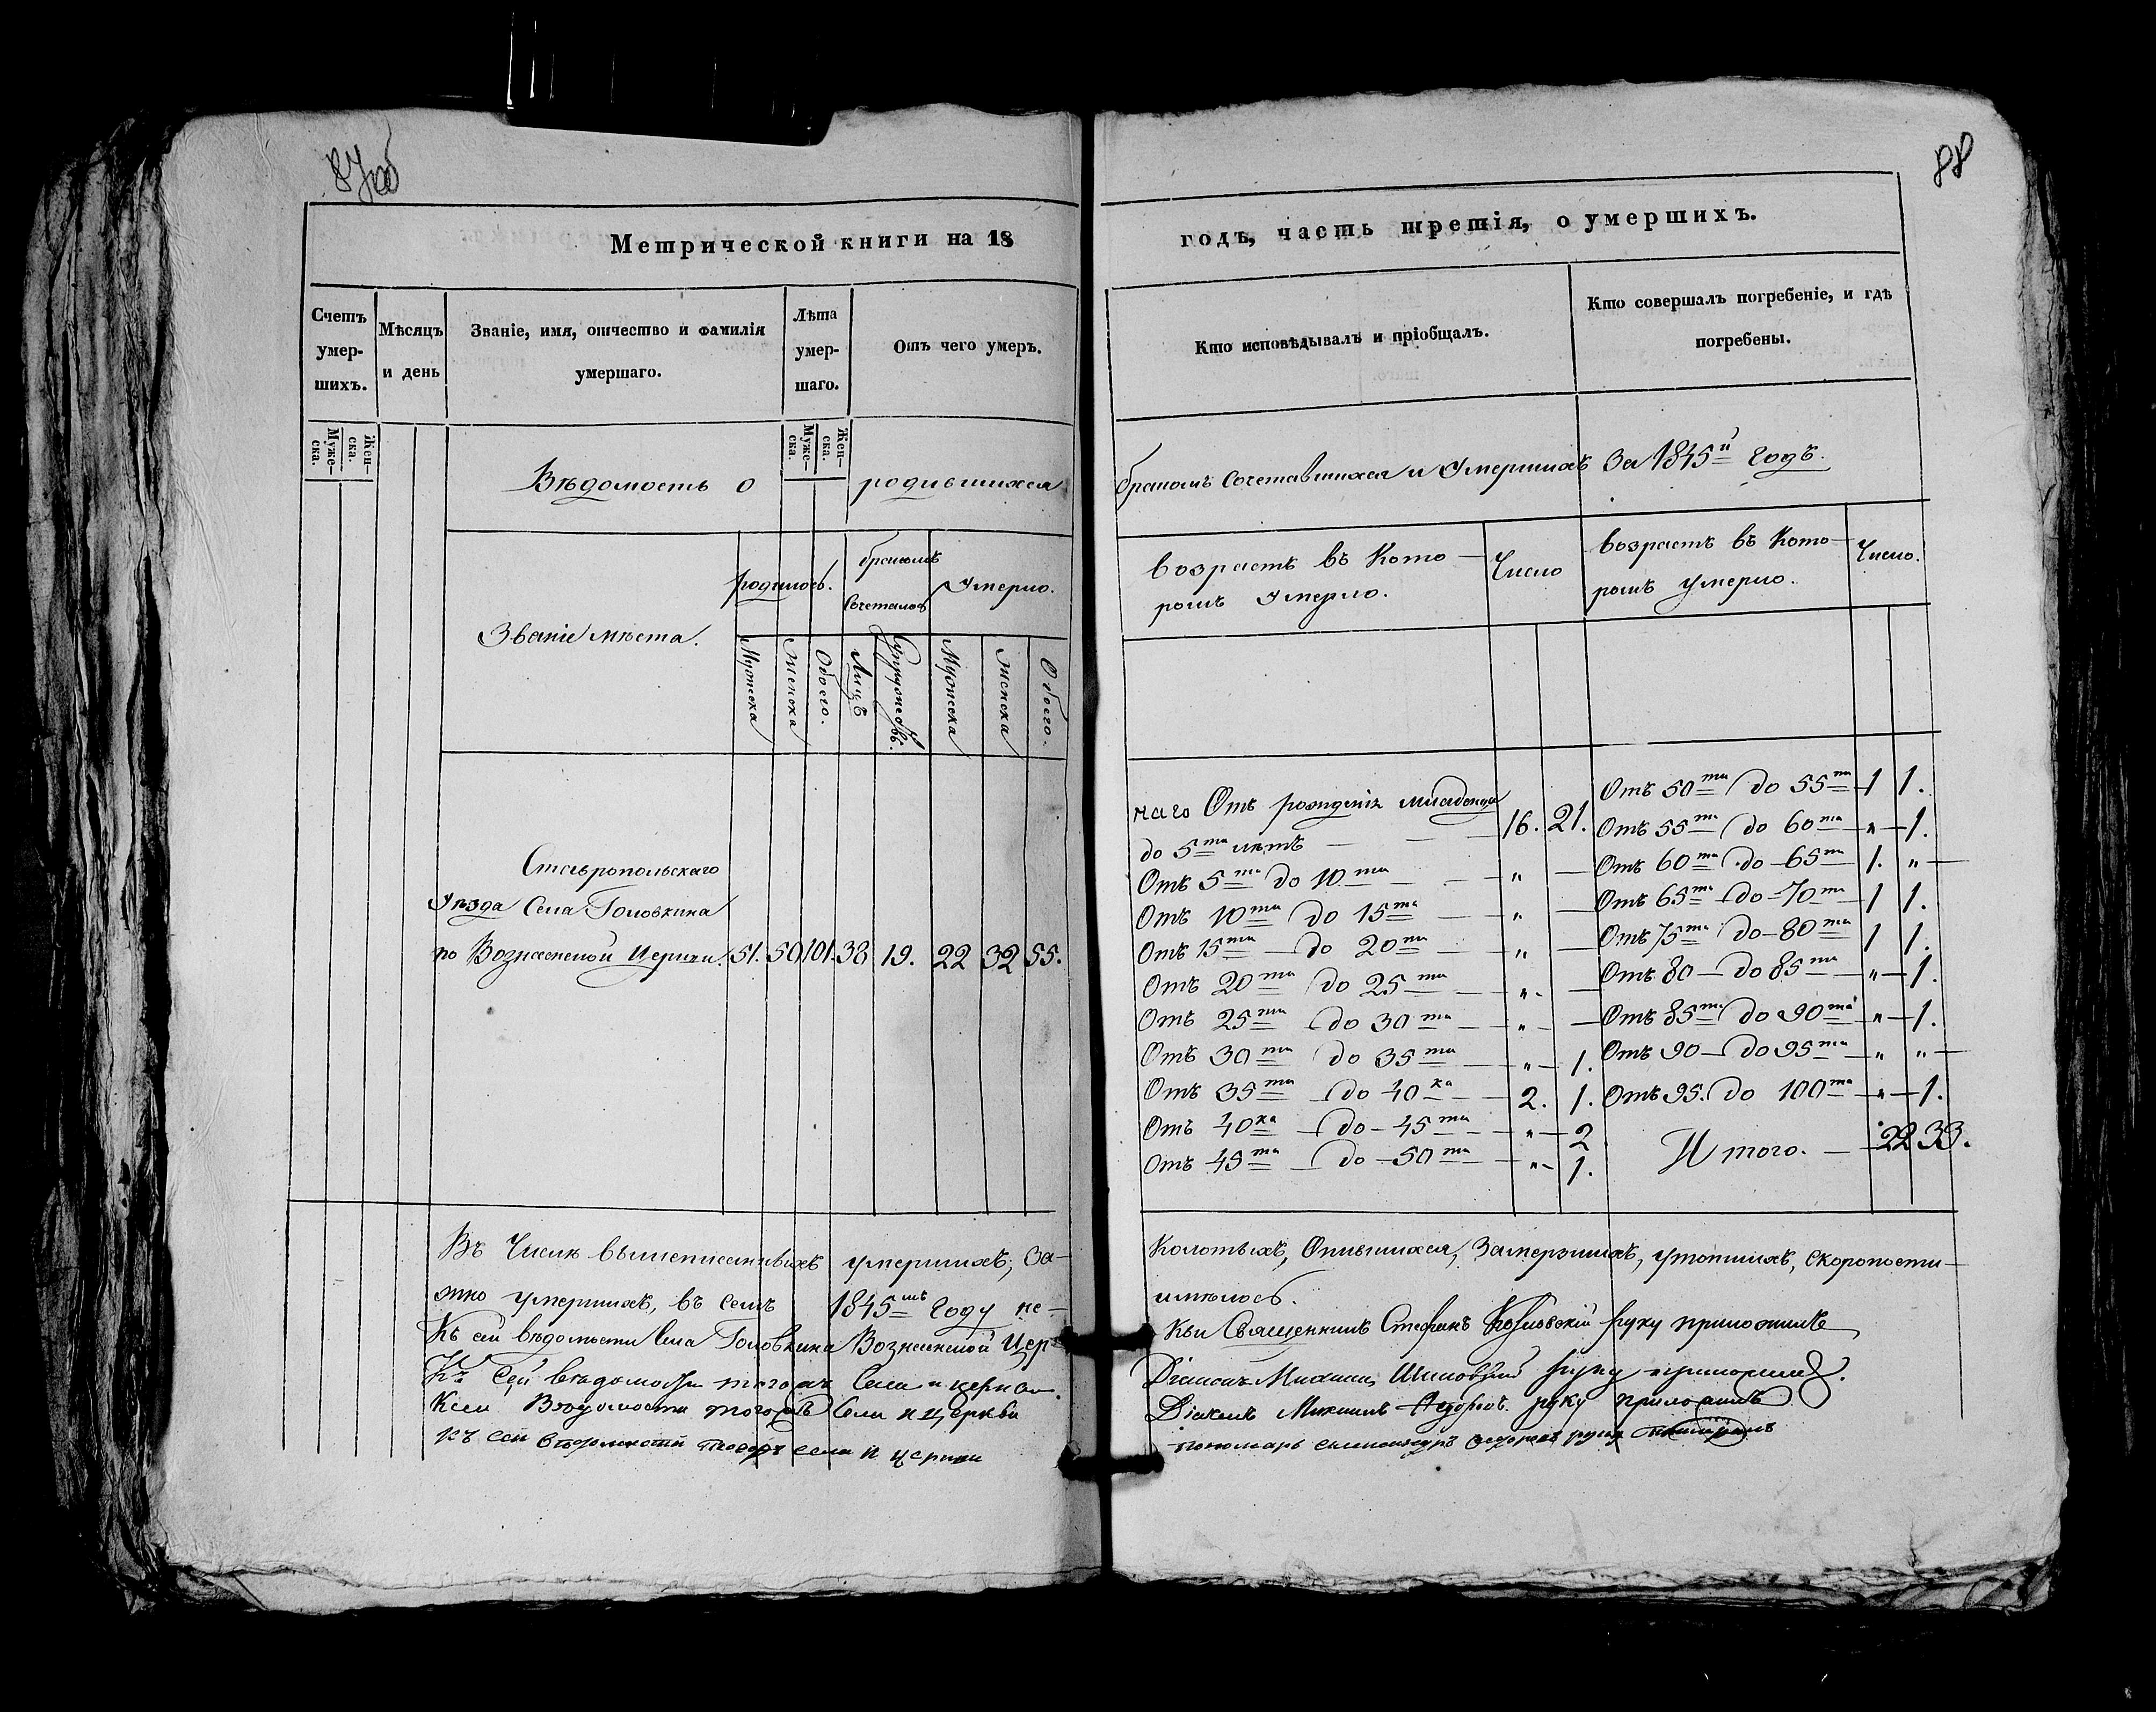 87об
88
Метрической книги на 18
годъ, часть третія, о умершихъ.
Счетъ умер-шихъ.
Мѣсяцъ и день
Званіе, имя, отчество и фамилія умершаго.
Лѣта умер-шаго.
Отъ чего умеръ.
Кто исповѣдывалъ и пріобщалъ.
Кто совершалъ погребеніе, и гдѣ погребены.
Муже-ска.
Жен-ска.
Муже-ска.
Жен-ска.
Вѣдомость о родившихся
бракомъ сочетавшихся и умершихъ За 1845й годъ.
Званіе мѣста.
родилось.
бракомъ сочеталось
Умерло.
Мужеска
Женска
Обоего.
Лицъ
Супружествъ.
Мужеска
Женска
Обоего.
возрастъ въ Кото-ромъ умерло.
Число
возрастъ въ Кото-ромъ умерло.
Число.
Ставропольскаго
Уѣзда Села Головкина
по Вознесенской Церкви. 51. 50 101. 38 19. 22 32 55.
наго Отъ рожденія младенца
до 5ти лѣтъ — — 16. 21.
Отъ 5ти до 10ти — — „ —
Отъ 10ти до 15ти — — „ —
Отъ 15ти — до 20ти — — „ —
Отъ 20ти до 25ти — „ — —
Отъ 25ти до 30ти — „ — —
Отъ 30ти до 35ти — „ — 1.
Отъ 35ти до 40ка — 2. 1.
Отъ 40ка — до — 45ти — „ — 2
Отъ 45ти — до — 50ти — „ — 1.
Отъ 50ти до 55ти 1 1.
Отъ 55ти до 60ти — „ — 1.
Отъ 60ти до — 65ти 1. „ —
Отъ 65ти до — 70ти 1 1.
Отъ 75ти до — 80ти 1 1.
Отъ 80 — до 85ти — „ — 1.
Отъ 85ти до 90та — „ — 1.
Отъ 90 — до 95ти — „ „ —
Отъ 95. до 100та — „ — 1.
Итого. — 22 33.
Въ Числѣ вышеписанныхъ умершихъ, За-
Колотыхъ, Опившихся, Замерзшихъ, утопшихъ, Скоропости-
жно умершихъ, въ семъ 1845мъ Году не-
имѣлось.
Къ сей вѣдомости Села Головкина Вознесенской Цер-
кви Священникъ Стефанъ Козловскій руку приложилъ
Къ сей вѣдомости тогожъ Села и церкви
Діаконъ Михаилъ руку приложилъ.
Ксей Вѣдомости тогожъ Села и Церкви
Дьячекъ Михаилъ Федоровъ руку приложилъ
къ сей вѣдомости тогожъ села и церкви
пономарь руку